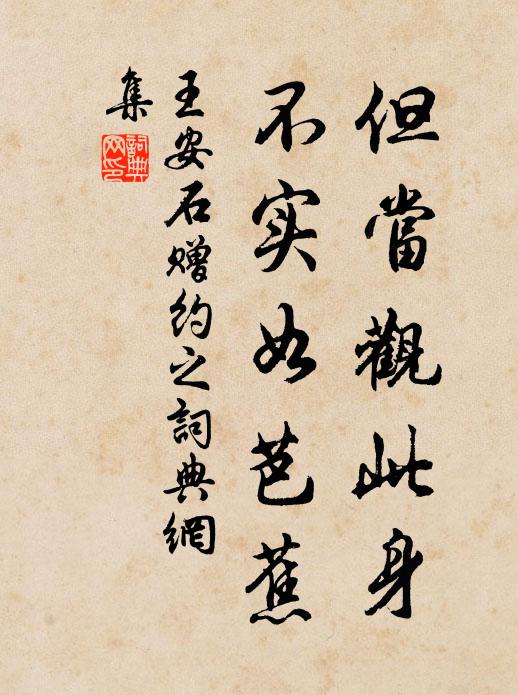 但當觀此身
不实如芭蕉
王安石赠約之詞典網
集
詞典
网印